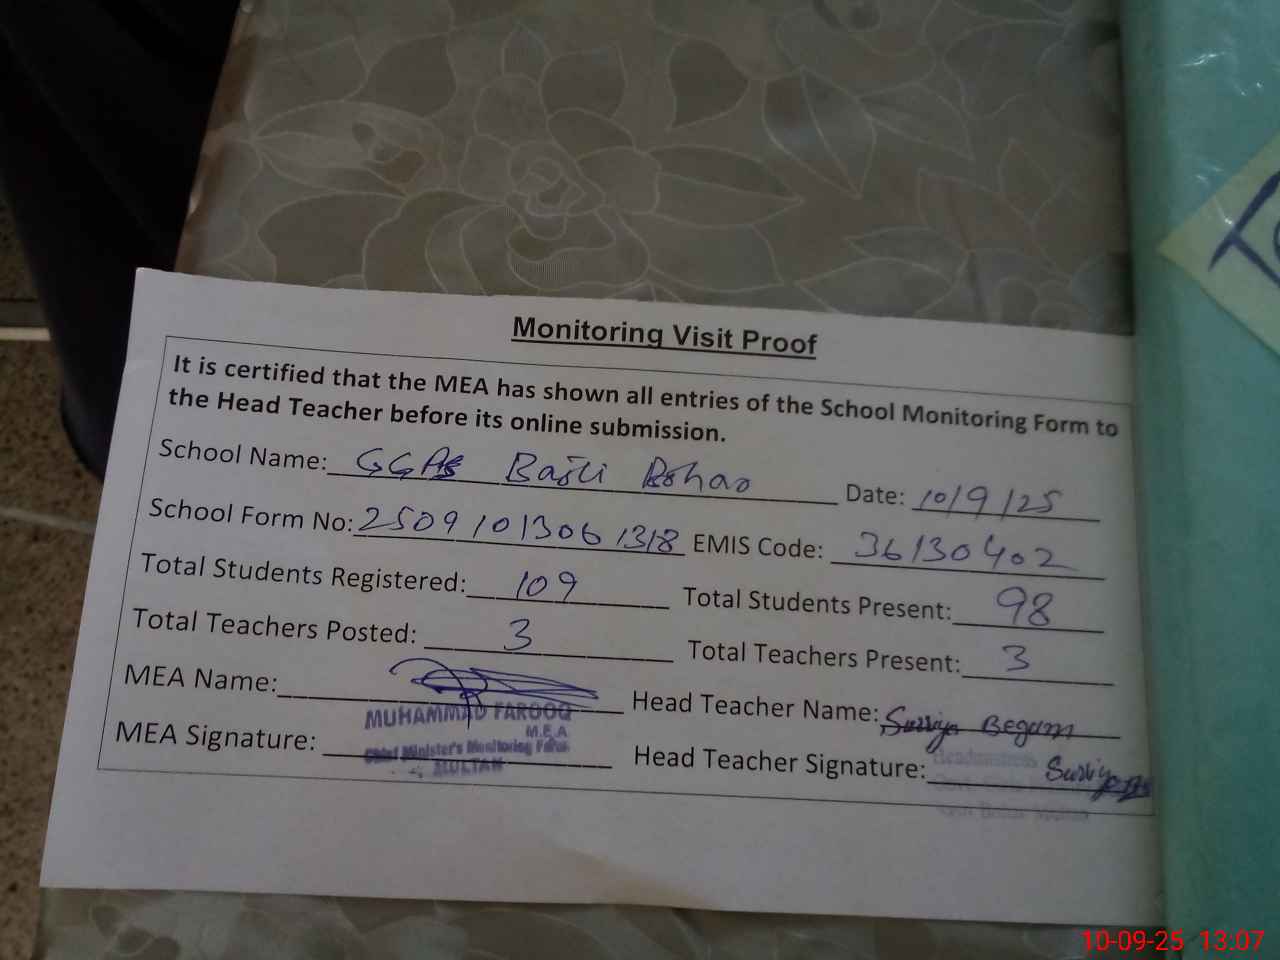 Monitoring Visit Proof
It is certified that the MEA has shown all entries of the School Monitoring Form to
the Head Teacher before its online submission.
School Name: GGPS Basti Date: 10/9/25
School Form No: 2509101306 1318 EMIS Code: 36130402
Total Students Registered: 109 Total Students Present: 98
Total Teachers Posted: 3 Total Teachers Present: 3
MEA Name: Head Teacher Name: Surriya Begum
MUHAMMAD FAROOQ
M.E.A
Chief Minister's Monitoring Force
MULTAN
MEA Signature: Head Teacher Signature:
Headmistress
10-09-25 13:07